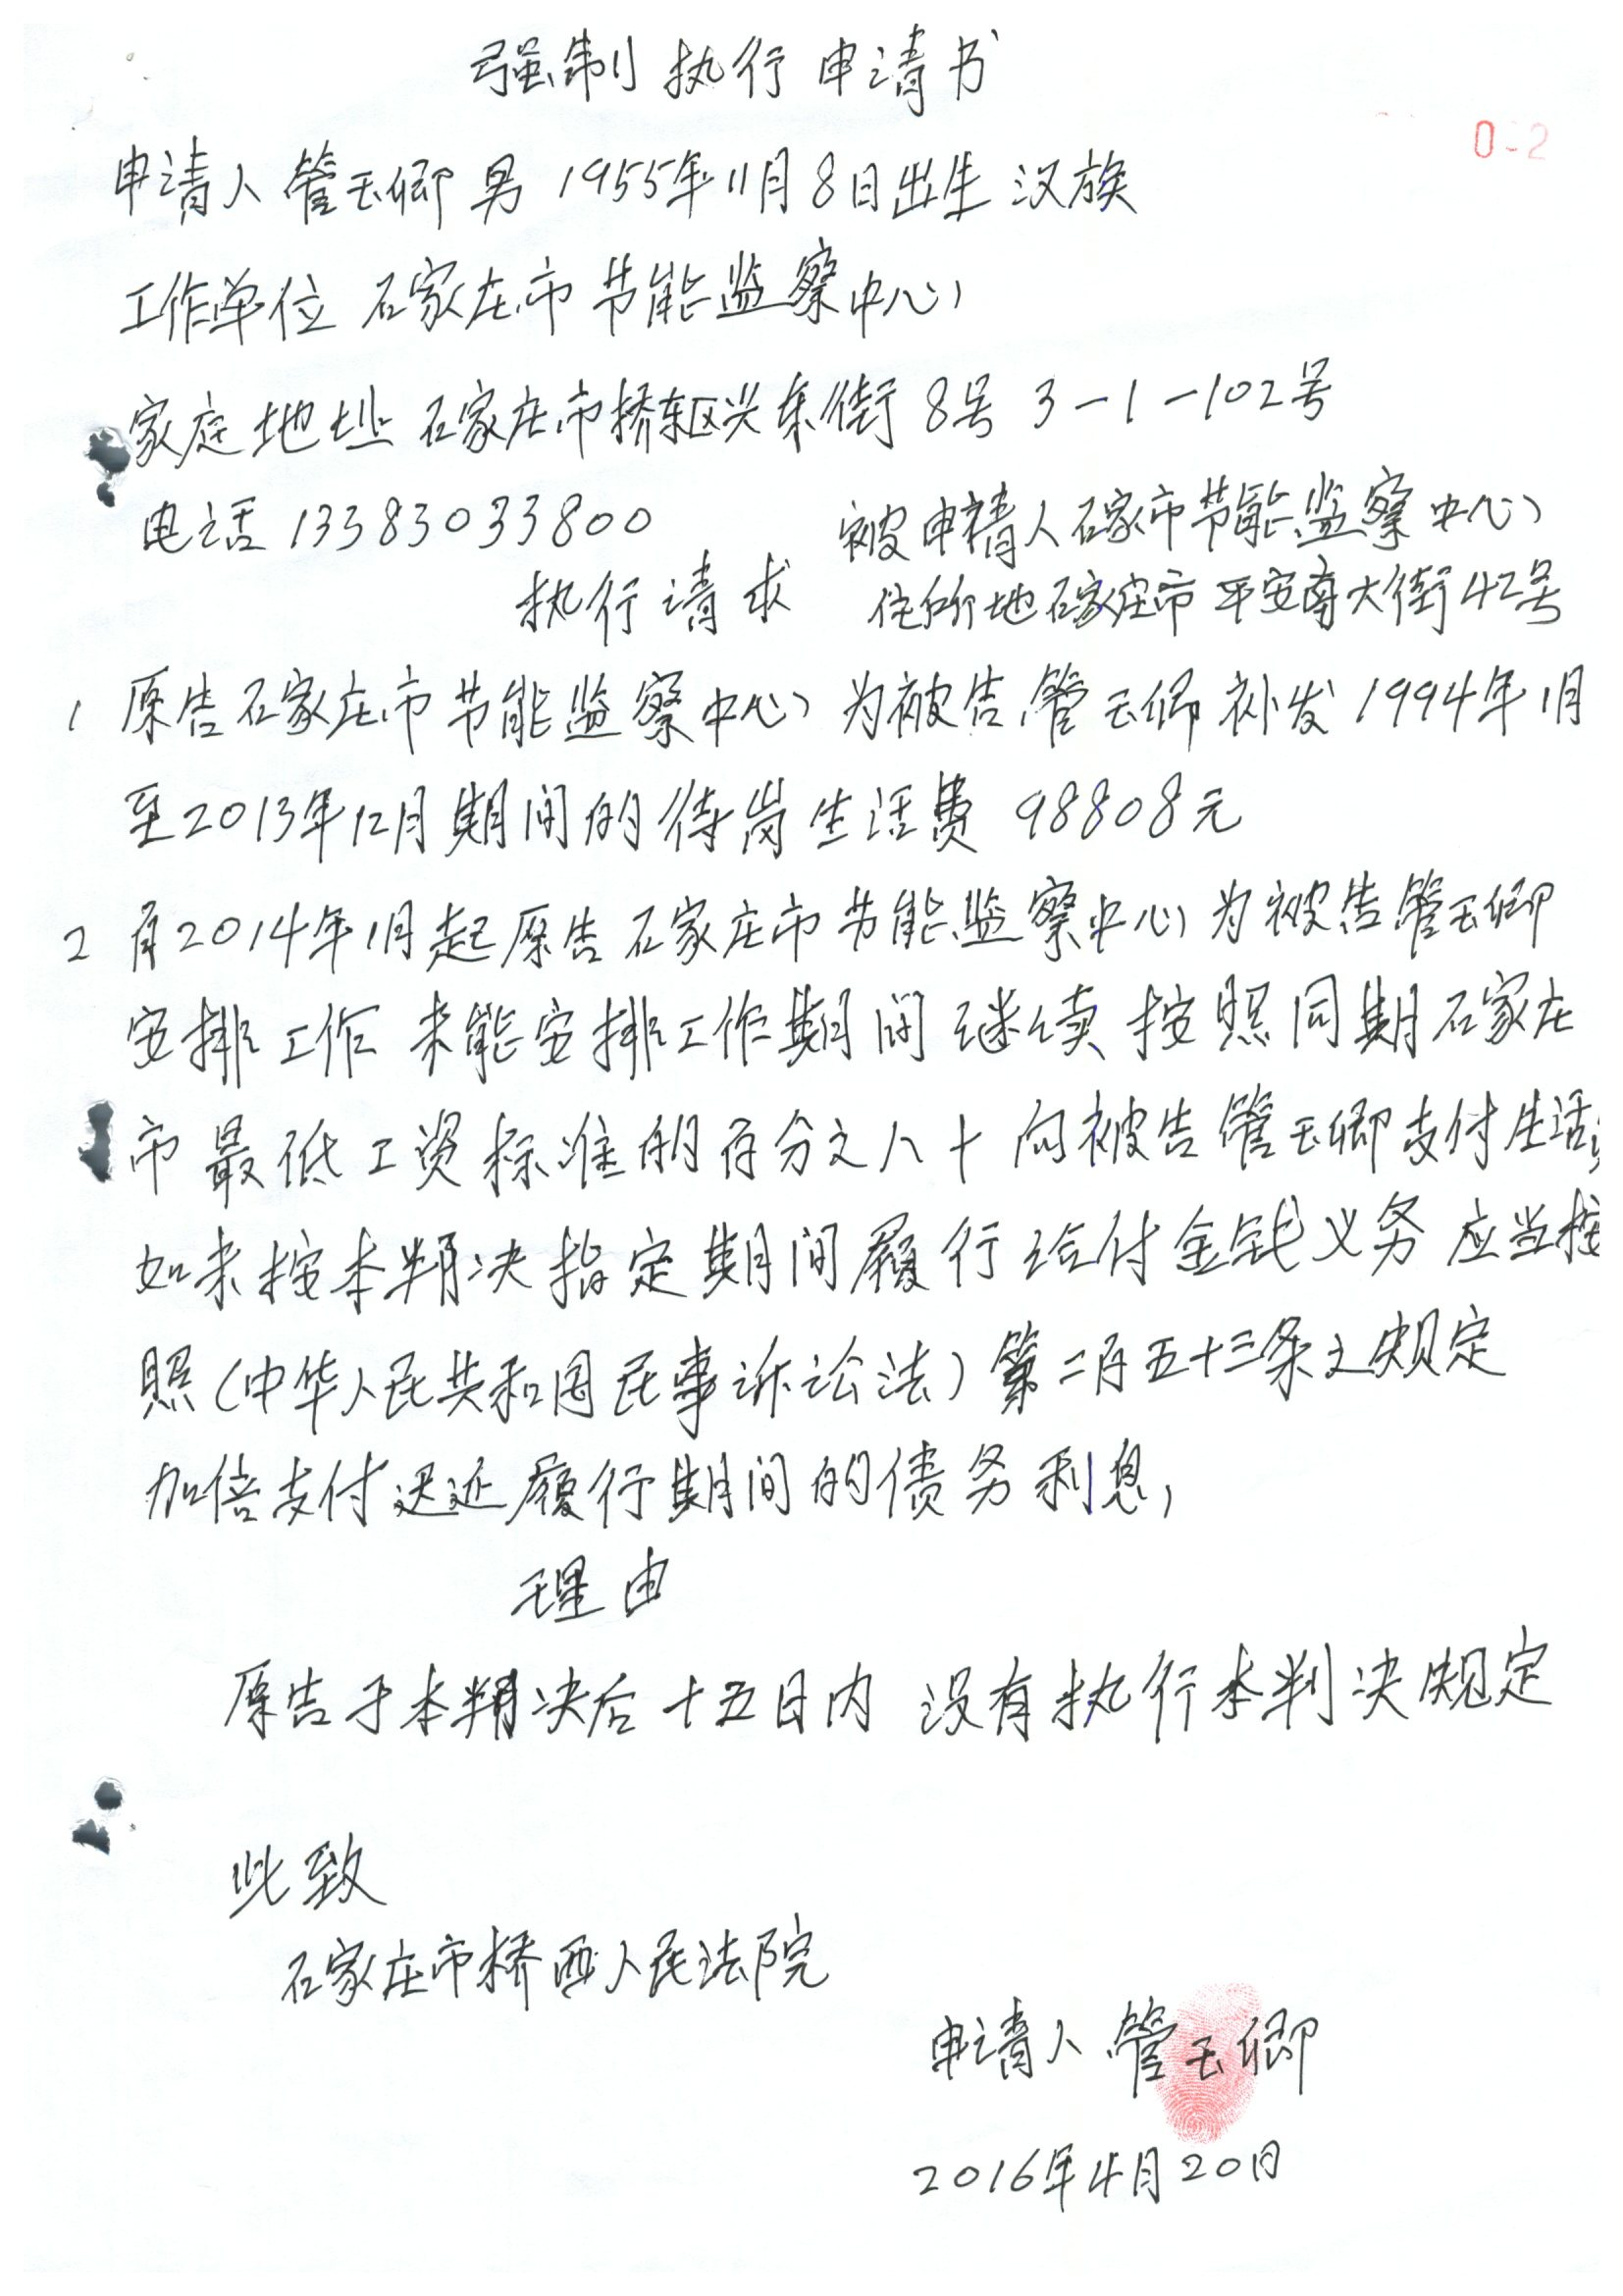 强制执行申请书
0-2
申请人 管玉卿 男 1955年11月8日出生 汉族
工作单位 石家庄市节能监察中心
家庭地址 石家庄市桥东区兴东街8号 3-1-102号
电话 13383033800
被申请人石家市节能监察中心
住所地石家庄市平安南大街42号
执行请求
1 原告石家庄市节能监察中心为被告管玉卿补发1994年1月
至2013年12月期间的待岗生活费 98808元
2 自2014年1月起原告石家庄市节能监察中心为被告管玉卿
安排工作 未能安排工作期间继续按照同期石家庄
市最低工资标准的百分之八十向被告管玉卿支付生活
如未按本判决指定期间履行给付金钱义务 应当按
照(中华人民共和国民事诉讼法)第二百五十三条之规定
加倍支付迟延履行期间的债务利息,
理由
原告于本判决后十五日内 没有执行本判决规定
此致
石家庄市桥西人民法院
申请人 管玉卿
2016年4月20日